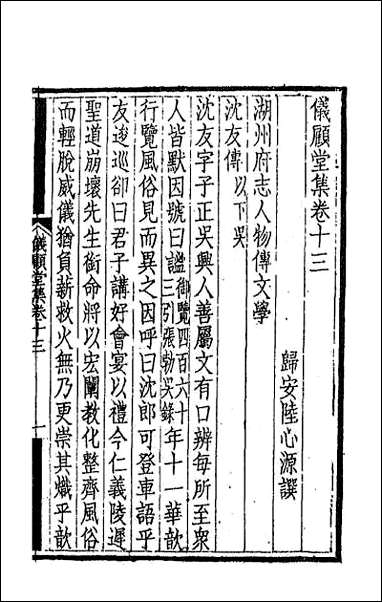 儀顧堂集卷十三
歸安陸心源譔
湖州府志人物傳文學
沈友傳以下吳
沈友字子正吳興人善屬文有口辨每所至衆
人皆默因號曰謐御覽四百六十三引張勃吳錄年十一華歆
行覽風俗見而異之因呼曰沈郎可登車語乎
友逡巡卻曰君子講好會宴以禮今仁義陵遲
聖道崩壞先生銜命將以宏闡教化整齊風俗
而輕脫威儀猶負薪救火無乃更崇其熾乎歆
儀顧堂集卷十三
一